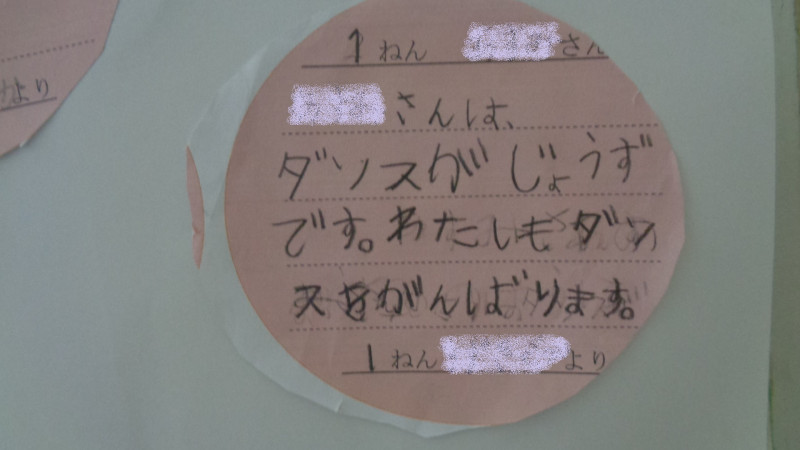 1 ねん さん
さんは、
ダンスが じょうず
です。わたしも ダン
スをがんばります。
1 ねん より
より